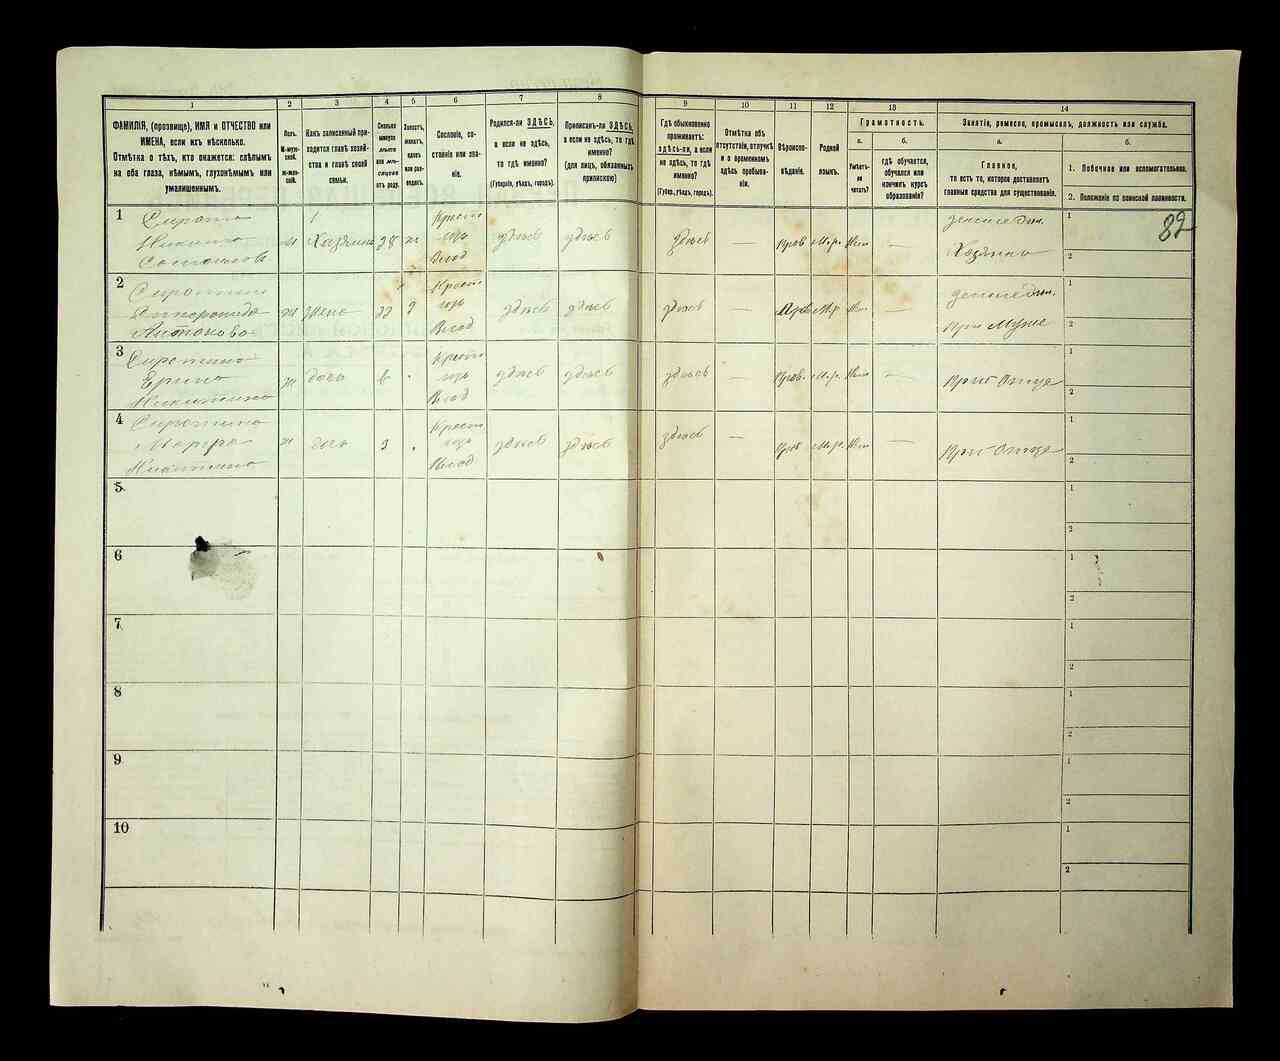 1 2 3 4 5 6 7 8 9 10 11 12 13 14
ФАМИЛІЯ, (прозвище), ИМЯ и ОТЧЕСТВО или
ИМЕНА, если ихъ нѣсколько.
Отмѣтка о тѣхъ, кто окажется: слѣпымъ
на оба глаза, нѣмымъ, глухонѣмымъ или
умалишеннымъ.
Полъ.
М-муж-
ской.
Ж-жен-
скій.
Какъ записанный при-
ходится главѣ хозяй-
ства и главѣ своей
семьи.
Сколько
минуло
лѣтъ
или мѣ-
сяцевъ
отъ роду.
Холостъ,
женатъ,
вдовъ
или раз-
веденъ.
Сословіе, со-
стояніе или зва-
ніе.
Родился-ли ЗДѢСЬ,
а если не здѣсь,
то гдѣ именно?
(Губернія, уѣздъ, городъ).
Приписанъ-ли ЗДѢСЬ,
а если не здѣсь, то гдѣ
именно?
(для лицъ, обязанныхъ
припискою)
Гдѣ обыкновенно
проживаетъ:
здѣсь-ли, а если
не здѣсь, то гдѣ
именно?
(Губер., уѣздъ, городъ).
Отмѣтка объ
отсутствіи, отлучкѣ
и о временномъ
здѣсь пребыва-
ніи.
Вѣроиспо-
вѣданіе.
Родной
языкъ.
Грамотность.
а.
Умѣетъ-
ли
читать?
б.
гдѣ обучается,
обучался или
кончилъ курсъ
образованія?
Занятіе, ремесло, промыселъ, должность или служба.
а.
Главное,
то есть то, которое доставляетъ
главныя средства для существованія.
б.
1. Побочное или вспомогательное.
2. Положеніе по воинской повинности.
82
1
Никита
м Хозяинъ 28 ж
Крест
Влад
здѣсь здѣсь здѣсь — Прав —
Хозяинъ
1
2
2
Антонова
ж жена
Крест
Влад
здѣсь здѣсь здѣсь — —
При Мужѣ
1
2
3
Сиротина
Никитина
ж дочь 6
Крест
Влад
здѣсь здѣсь здѣсь — Прав. —
При Отцѣ
1
2
4
Сиротина
Марфа
Никитина
ж дочь 3
Крест
Влад
здѣсь здѣсь здѣсь — Прав —
При Отцѣ
1
2
5
1
2
6
1
2
7
1
2
8
1
2
9
1
2
10
1
2